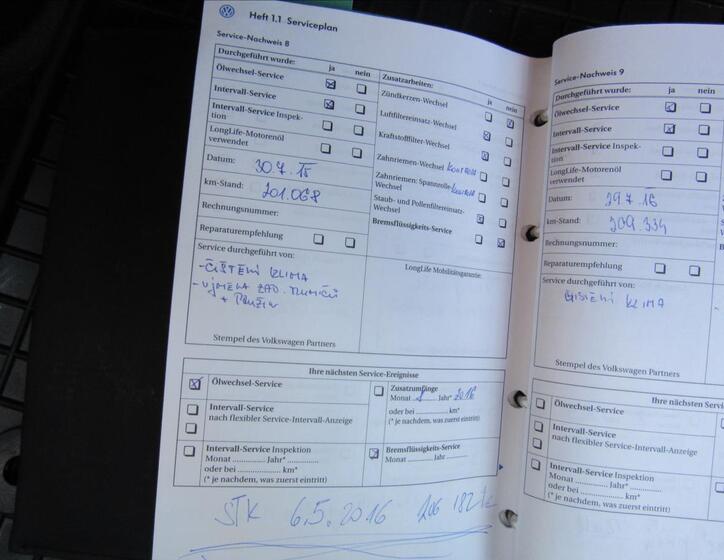 Heft 1.1 Serviceplan
Service-Nachweis 8
Durchgeführt wurde: ja nein
Ölwechsel-Service
Intervall-Service
Intervall-Service Inspek-
tion
LongLife-Motorenöl
verwendet
Datum: 30.7.15
km-Stand: 201.068
Rechnungsnummer:
Reparaturempfehlung
Zusatzarbeiten: ja nein
Zündkerzen-Wechsel
Luftfiltereinsatz-Wechsel
Kraftstofffilter-Wechsel
Zahnriemen-Wechsel
Zahnriemen: Spannrolle
Wechsel
Staub- und Pollenfiltereinsatz-
Wechsel
Bremsflüssigkeits-Service
Service durchgeführt von:
- ČIŠTĚNÍ KLIMA
- VÝMĚNA ZAD. TLUMIČŮ
+ PRUŽIN
Stempel des Volkswagen Partners
LongLife Mobilitätsgarantie:
Ihre nächsten Service-Ereignisse
Ölwechsel-Service
Intervall-Service
nach flexibler Service-Intervall-Anzeige
Intervall-Service Inspektion
Monat ............ Jahr* ............
oder bei ............ km*
(* je nachdem, was zuerst eintritt)
Zusatzumfänge
Monat Jahr* 2016
oder bei ............ km*
(* je nachdem, was zuerst eintritt)
Bremsflüssigkeits-Service
Monat ............ Jahr ............
STK 6.5.2016 206 182
Service-Nachweis 9
Durchgeführt wurde: ja nein
Ölwechsel-Service
Intervall-Service
Intervall-Service Inspek-
tion
LongLife-Motorenöl
verwendet
Datum: 29.7.16
km-Stand: 209.334
Rechnungsnummer:
Reparaturempfehlung
Service durchgeführt von:
ČIŠTĚNÍ KLIMA
Stempel des Volkswagen Partners
Ihre nächsten
Ölwechsel-Service
Intervall-Service
nach flexibler Service-Intervall-Anzeige
Intervall-Service Inspektion
Monat ............ Jahr* ............
oder bei ............ km*
(* je nachdem, was zuerst eintritt)